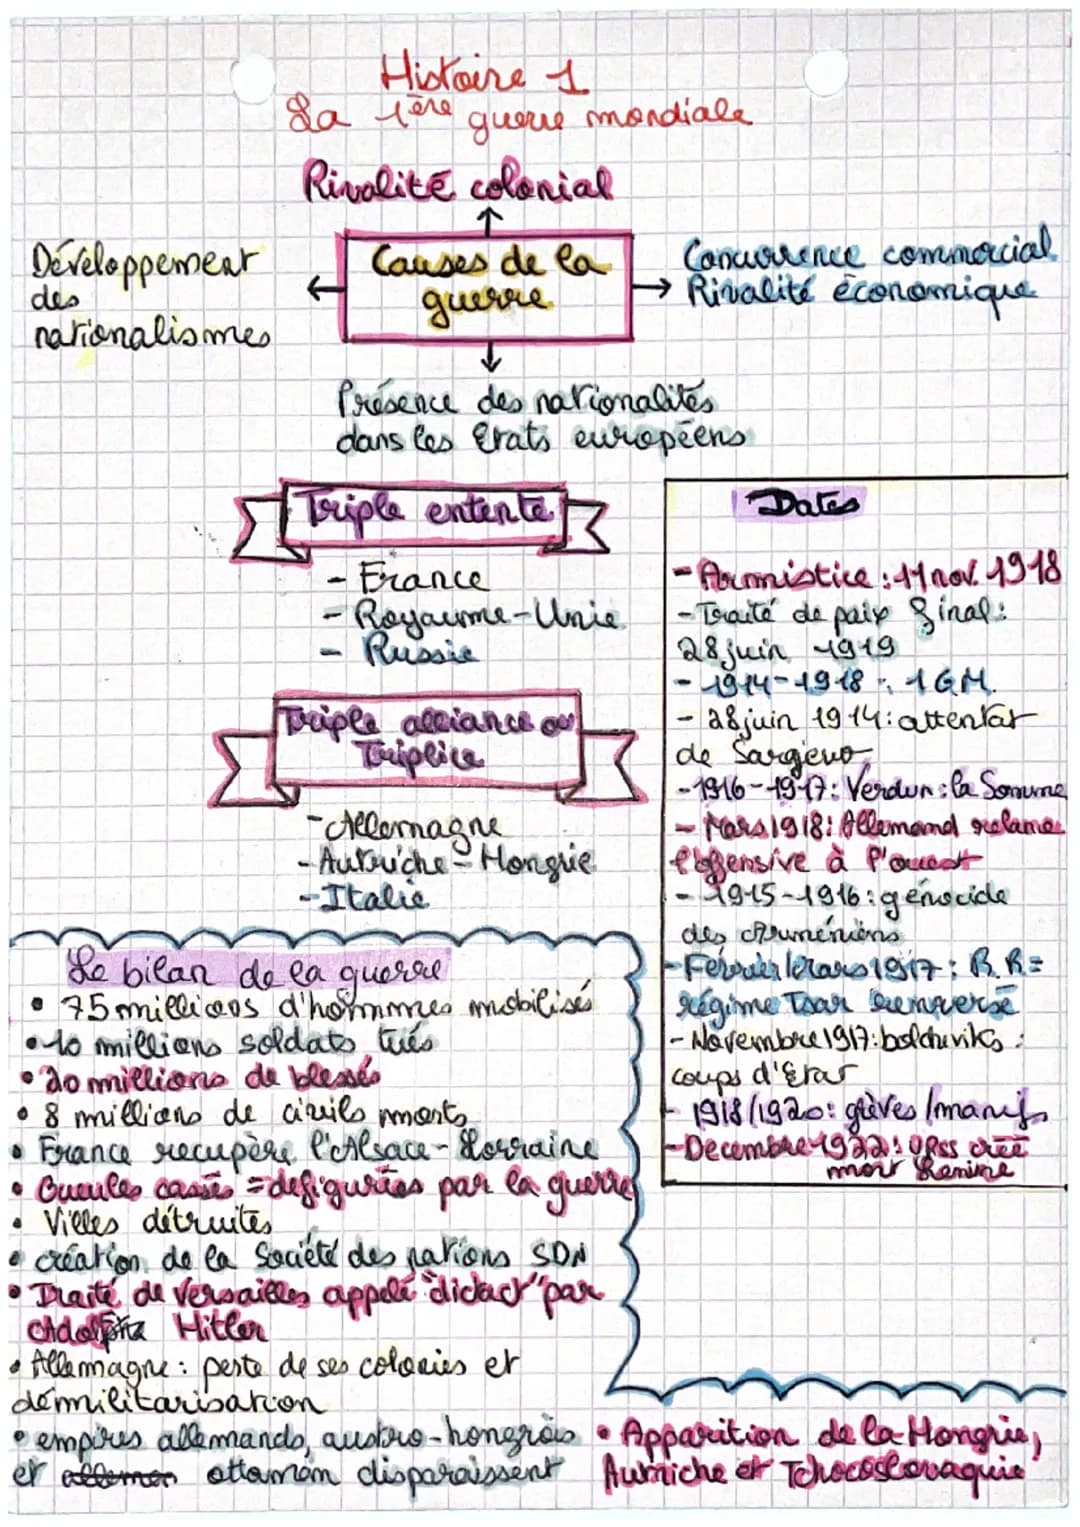 Histoire 1
La 1ère guerre mondiale
Rivalité colonial
Causes de la
guerre
Développement
des
nationalismes
Concurrence commercial
Rivalité économique
Présence des nationalités
dans les Etats européens
Triple entente
- France
- Royaume-Unie
- Russie
Triple alliance ou
Triplice
- Allemagne
- Autriche - Hongrie
- Italie
Dates
- Armistice : 11 nov. 1918
- Traité de paix final :
28 juin 1919
- 1914-1918 : 1GM.
- 28 juin 1914 : attentat
de Sargievo
- 1916-1917 : Verdun : la Somme
- Mars 1918 : Allemand relance
l'offensive à l'ouest
- 1915-1916 : génocide
des Arméniens
- Février/Mars 1917 : R.R =
régime Tsar renversé
- Novembre 1917 : bolcheviks :
coups d'Etat
- 1918/1920 : grèves/manifs
- Decembre 1922 : URSS créé
mort Lenine
Le bilan de la guerre
• 75 millions d'hommes mobilisés
• 10 millions soldats tués
• 20 millions de blessés
• 8 millions de civils morts
• France recupère l'Alsace-Lorraine
• Gueules cassés = défigurées par la guerre
• Villes détruites
• création de la Société des nations SDN
• Traité de Versailles appelé "didact" par
Hitler
• Allemagne : perte de ses colonies et
démilitarisation
• empires allemands, austro-hongrois
et ottoman disparaissent
• Apparition de la Hongrie,
Autriche et Tchocoslovaquie